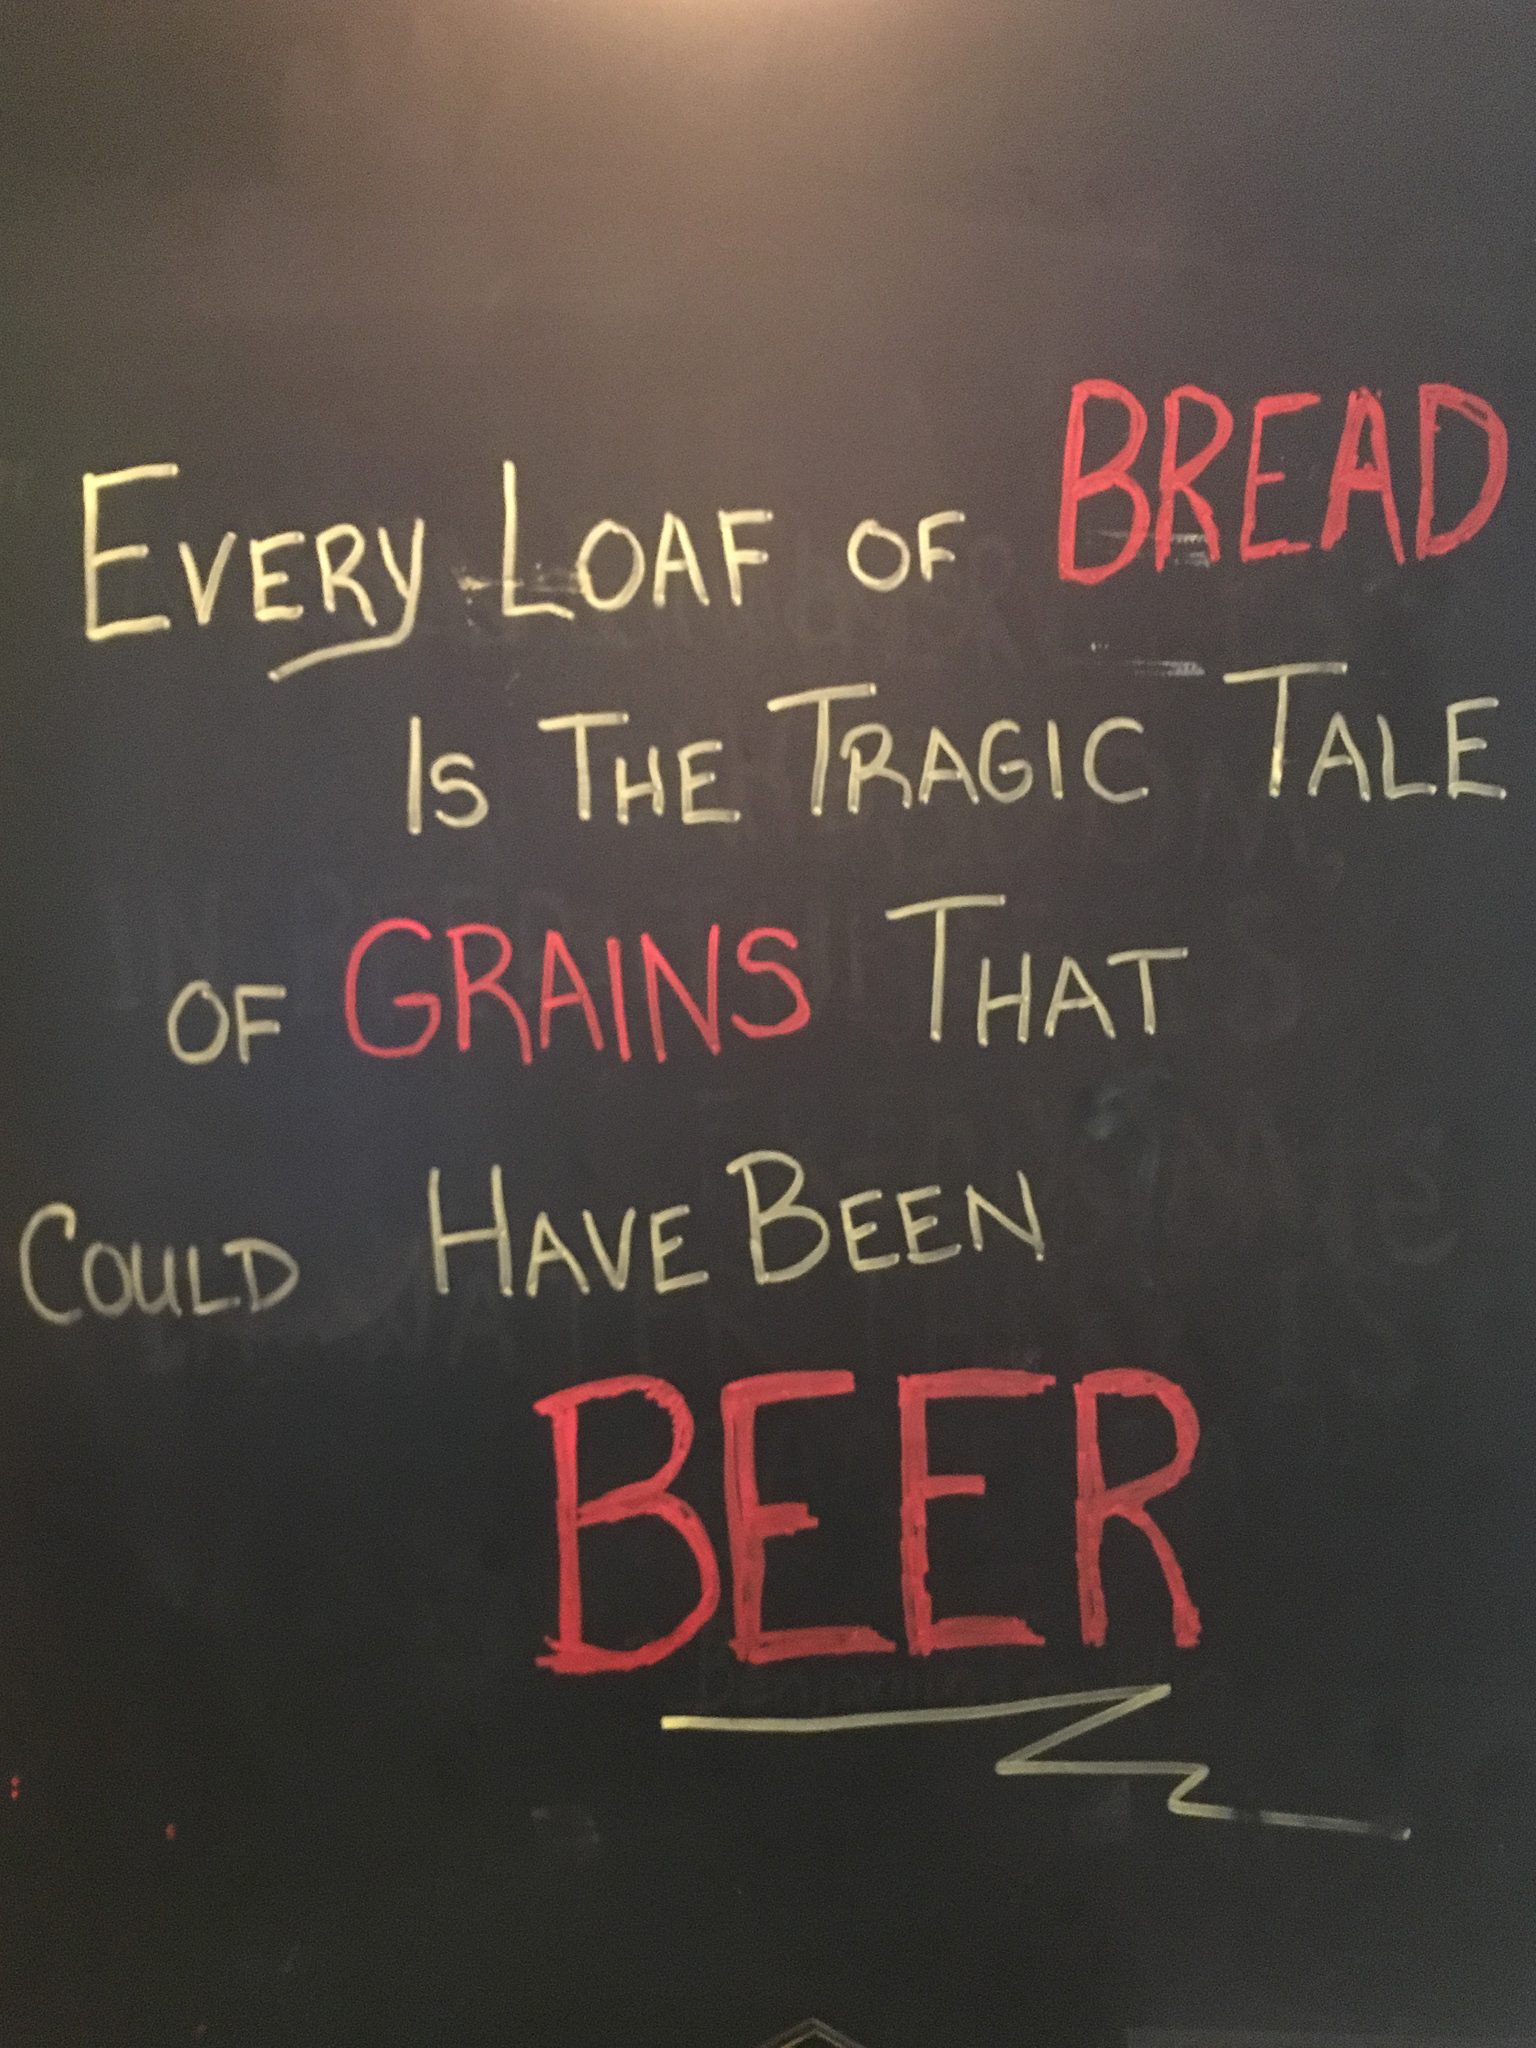 EVERY LOAF OF BREAD
IS THE TRAGIC TALE
OF GRAINS THAT
COULD HAVE BEEN
BEER